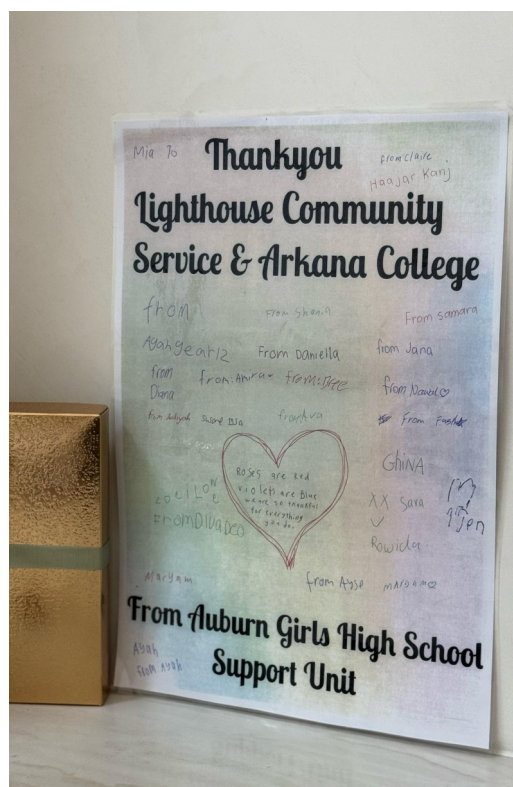 Mia To
Thankyou
from Claire
Haajar Kanj
Lighthouse Community
Service & Arkana College
from
From Shania
From Samara
Ayah year 12
From Daniella
from Jana
from
Diana
from: Amira
from: Dee
from Nawal
from Ava
From
GhiNA
Roses are red
violets are Blue
we are so thankful
for everything
you do.
XX Sara
Jen
Rowida
Maryam
from Ayse
maryam
From Auburn Girls High School
Support Unit
Ayah
from Ayah